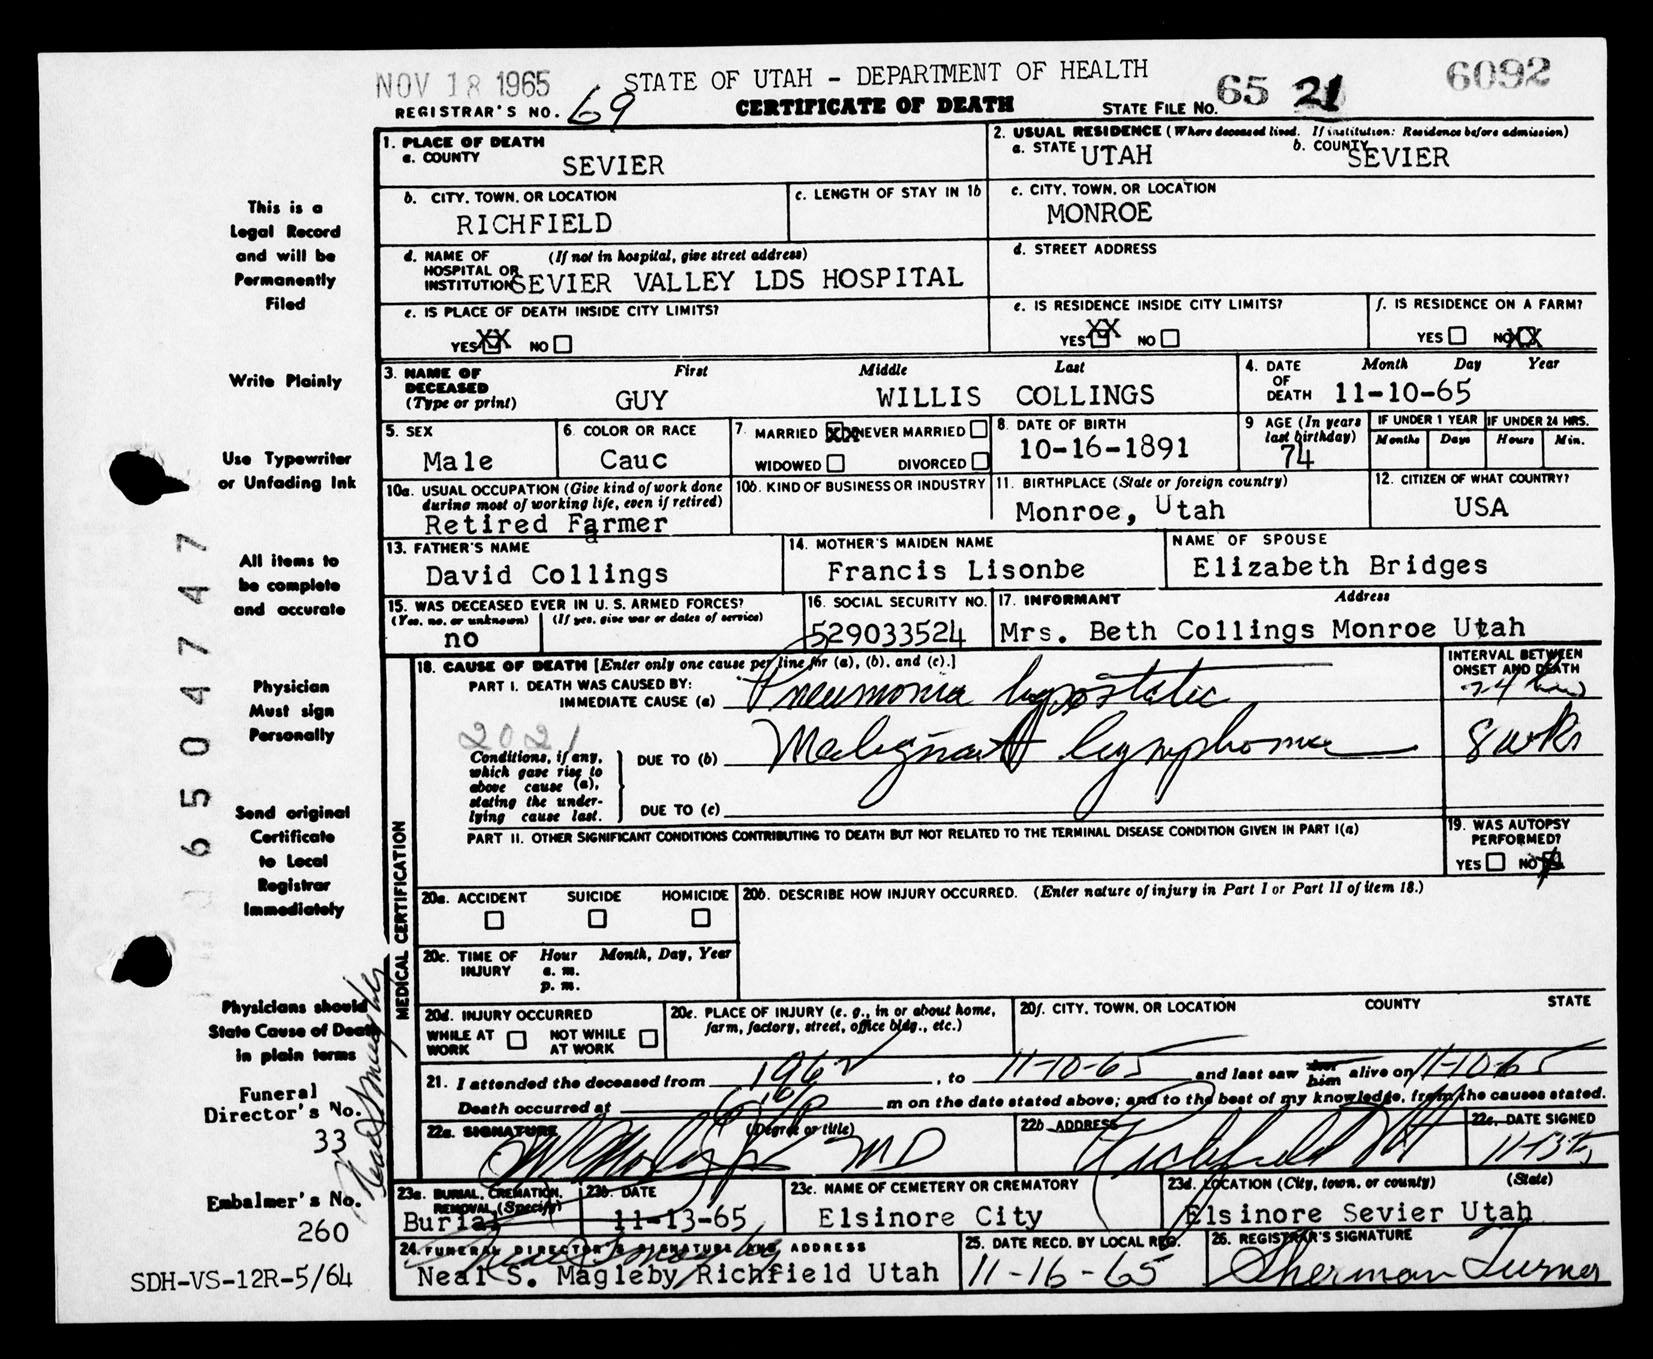 NOV 18 1965 STATE OF UTAH - DEPARTMENT OF HEALTH 65 21 6092
REGISTRAR'S NO. 69 CERTIFICATE OF DEATH STATE FILE NO.
1. PLACE OF DEATH
a. COUNTY SEVIER
2. USUAL RESIDENCE (Where deceased lived. If institution: Residence before admission)
a. STATE UTAH b. COUNTY SEVIER
b. CITY, TOWN, OR LOCATION RICHFIELD
c. LENGTH OF STAY IN 1b
c. CITY, TOWN, OR LOCATION MONROE
d. NAME OF HOSPITAL OR INSTITUTION (If not in hospital, give street address)
SEVIER VALLEY LDS HOSPITAL
d. STREET ADDRESS
e. IS PLACE OF DEATH INSIDE CITY LIMITS?
YES XX NO
e. IS RESIDENCE INSIDE CITY LIMITS?
YES XX NO
f. IS RESIDENCE ON A FARM?
YES NO XX
3. NAME OF DECEASED (Type or print)
First Middle Last
GUY WILLIS COLLINGS
4. DATE OF DEATH Month Day Year
11-10-65
5. SEX
Male
6. COLOR OR RACE
Cauc
7. MARRIED XX NEVER MARRIED
WIDOWED DIVORCED
8. DATE OF BIRTH
10-16-1891
9 AGE (In years last birthday)
74
IF UNDER 1 YEAR IF UNDER 24 HRS.
Months Days Hours Min.
10a. USUAL OCCUPATION (Give kind of work done during most of working life, even if retired)
Retired Farmer
a
10b. KIND OF BUSINESS OR INDUSTRY
11. BIRTHPLACE (State or foreign country)
Monroe, Utah
12. CITIZEN OF WHAT COUNTRY?
USA
13. FATHER'S NAME
David Collings
14. MOTHER'S MAIDEN NAME
Francis Lisonbe
NAME OF SPOUSE
Elizabeth Bridges
15. WAS DECEASED EVER IN U. S. ARMED FORCES?
(Yes, no, or unknown) (If yes, give war or dates of service)
no
16. SOCIAL SECURITY NO.
529033524
17. INFORMANT Address
Mrs. Beth Collings Monroe Utah
MEDICAL CERTIFICATION
18. CAUSE OF DEATH [Enter only one cause per line for (a), (b), and (c).]
INTERVAL BETWEEN ONSET AND DEATH
PART I. DEATH WAS CAUSED BY:
IMMEDIATE CAUSE (a) Pneumonia hypostatic 24 hrs
2021
Conditions, if any, which gave rise to above cause (a), stating the underlying cause last.
DUE TO (b) Malignant lymphoma 8 wks
DUE TO (c)
PART II. OTHER SIGNIFICANT CONDITIONS CONTRIBUTING TO DEATH BUT NOT RELATED TO THE TERMINAL DISEASE CONDITION GIVEN IN PART I(a)
19. WAS AUTOPSY PERFORMED?
YES NO X
20a. ACCIDENT SUICIDE HOMICIDE
20b. DESCRIBE HOW INJURY OCCURRED. (Enter nature of injury in Part I or Part II of item 18.)
20c. TIME OF INJURY Hour Month, Day, Year
a. m.
p. m.
20d. INJURY OCCURRED
WHILE AT WORK NOT WHILE AT WORK
20e. PLACE OF INJURY (e. g., in or about home, farm, factory, street, office bldg., etc.)
20f. CITY, TOWN, OR LOCATION COUNTY STATE
21. I attended the deceased from 1962, to 11-10-65 and last saw her him alive on 11-10-65
Death occurred at m on the date stated above; and to the best of my knowledge, from the causes stated.
22a. SIGNATURE (Degree or title)
MD
22b ADDRESS
Richfield Ut
22c. DATE SIGNED
23a. BURIAL, CREMATION, REMOVAL (Specify)
Burial
23b. DATE
11-13-65
23c. NAME OF CEMETERY OR CREMATORY
Elsinore City
23d. LOCATION (City, town, or county) (State)
Elsinore Sevier Utah
24. FUNERAL DIRECTOR'S SIGNATURE AND ADDRESS
Neal S. Magleby Richfield Utah
25. DATE RECD. BY LOCAL REG.
11-16-65
26. REGISTRAR'S SIGNATURE
Sherman Turner
This is a
Legal Record
and will be
Permanently
Filed
Write Plainly
Use Typewriter
or Unfading Ink
All items to
be complete
and accurate
Physician
Must sign
Personally
Send original
Certificate
to Local
Registrar
Immediately
Physicians should
State Cause of Death
in plain terms
Funeral
Director's No.
33
Embalmer's No.
260
SDH-VS-12R-5/64
Neal S Magleby
6504747